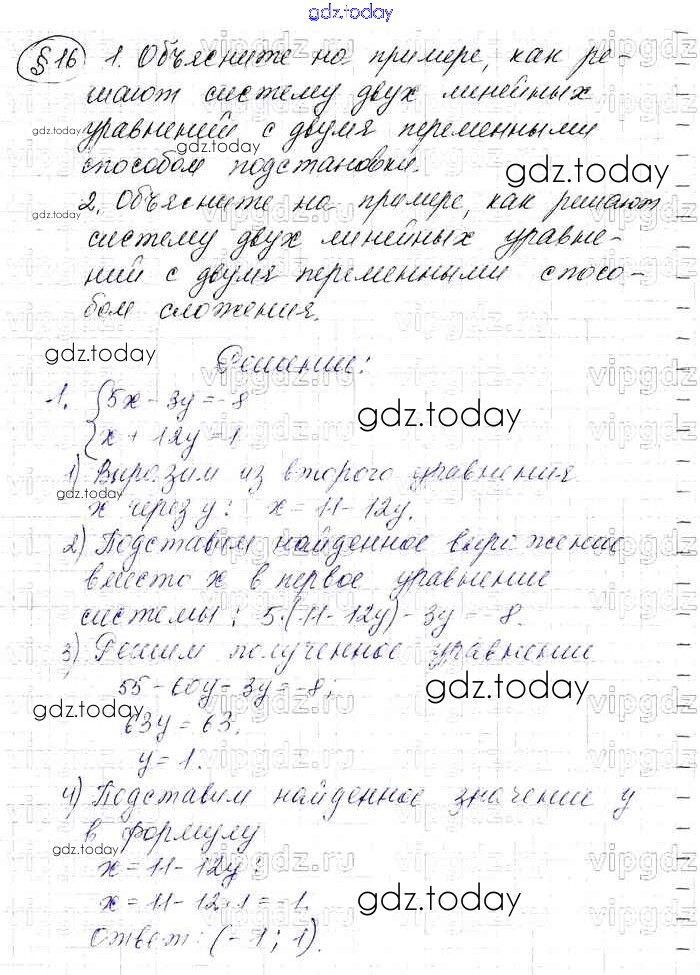 gdz.today
§ 16 1. Объясните на примере, как ре-
шают систему двух линейных
gdz.today уравнений с двумя переменными
gdz.today
способом подстановки.
gdz.today
2. Объясните на примере, как решают
gdz.today
систему двух линейных уравне-
ний с двумя переменными спосо-
бом сложения.
gdz.today
Решение:
1. {5x - 3y = -8
gdz.today
{x + 12y = 11
1) Выразим из второго уравнения
gdz.today
x через y: x = 11 - 12y.
2) Подставим найденное выражение
вместо x в первое уравнение
системы: 5·(11 - 12y) - 3y = -8.
3) Решим полученное уравнение
55 - 60y - 3y = -8;
gdz.today
gdz.today
63y = 63;
y = 1.
4) Подставим найденное значение y
в формулу
gdz.today
x = 11 - 12y;
x = 11 - 12·1 = -1.
gdz.today
Ответ: (-1; 1).
vipgdz.ru